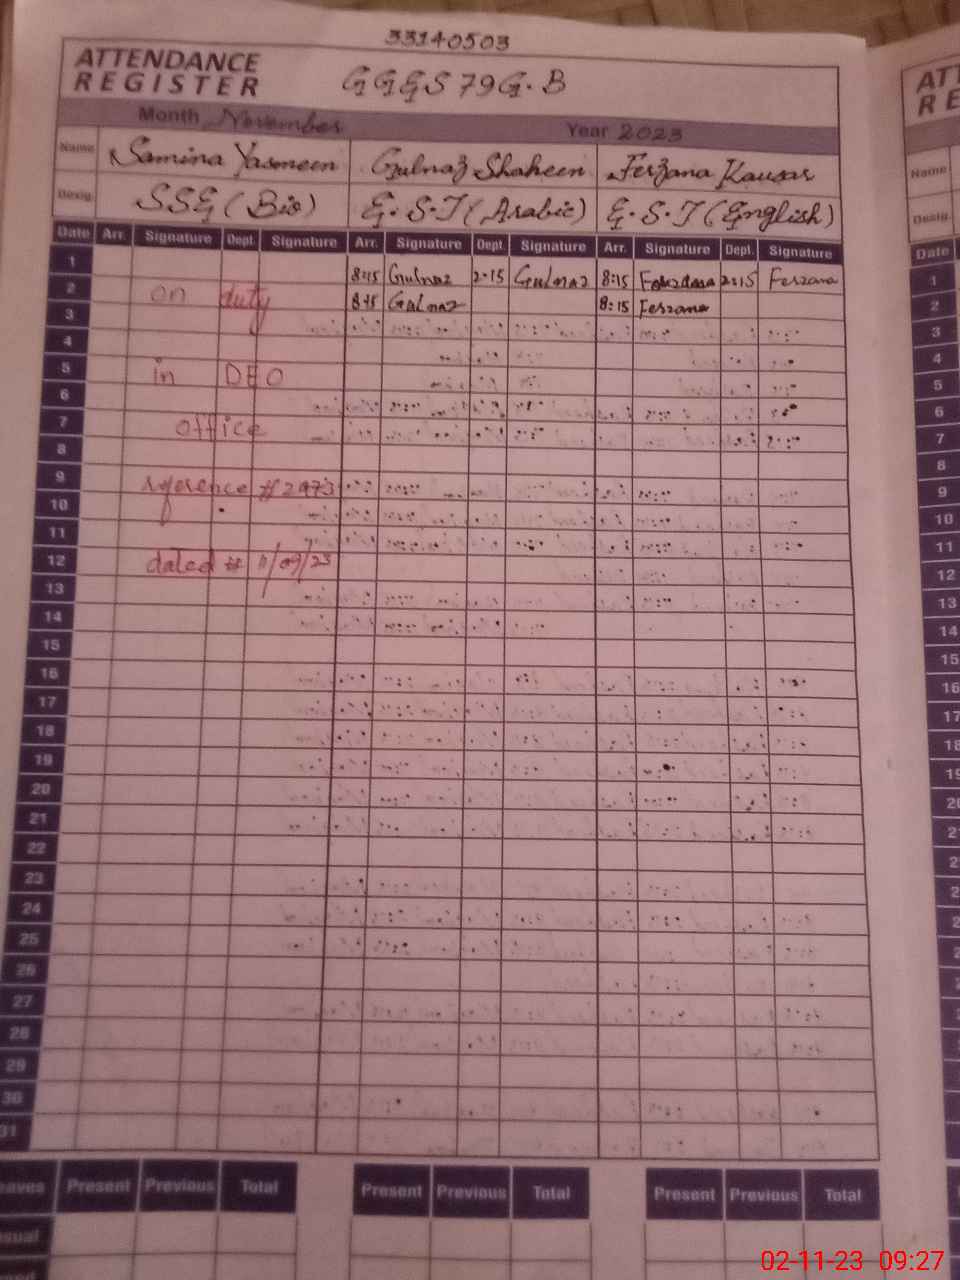 33140503
ATTENDANCE
REGISTER
GGES 79 G.B
Month November Year 2023
Name Samina Yasmeen Gulnaz Shaheen Ferzana Kausar
Desig. SSE (Bio) E.S.T (Arabic) E.S.T (English)
Date Arr. Signature Dept. Signature Arr. Signature Dept. Signature Arr. Signature Dept. Signature
1 8:15 Gulnaz 2:15 Gulnaz 8:15 Ferzana 2:15 Ferzana
2 on duty 8:15 Gulnaz 8:15 Ferzana
3
4
5 in DEO
6
7 office
8
9 reference #2973
10
11
12 dated # 11/09/23
13
14
15
16
17
18
19
20
21
22
23
24
25
26
27
28
29
30
31
eaves Present Previous Total Present Previous Total Present Previous Total
sual
ATT
RE
Name
Desig.
Date
1
2
3
4
5
6
7
8
9
10
11
12
13
14
15
16
17
18
19
02-11-23 09:27